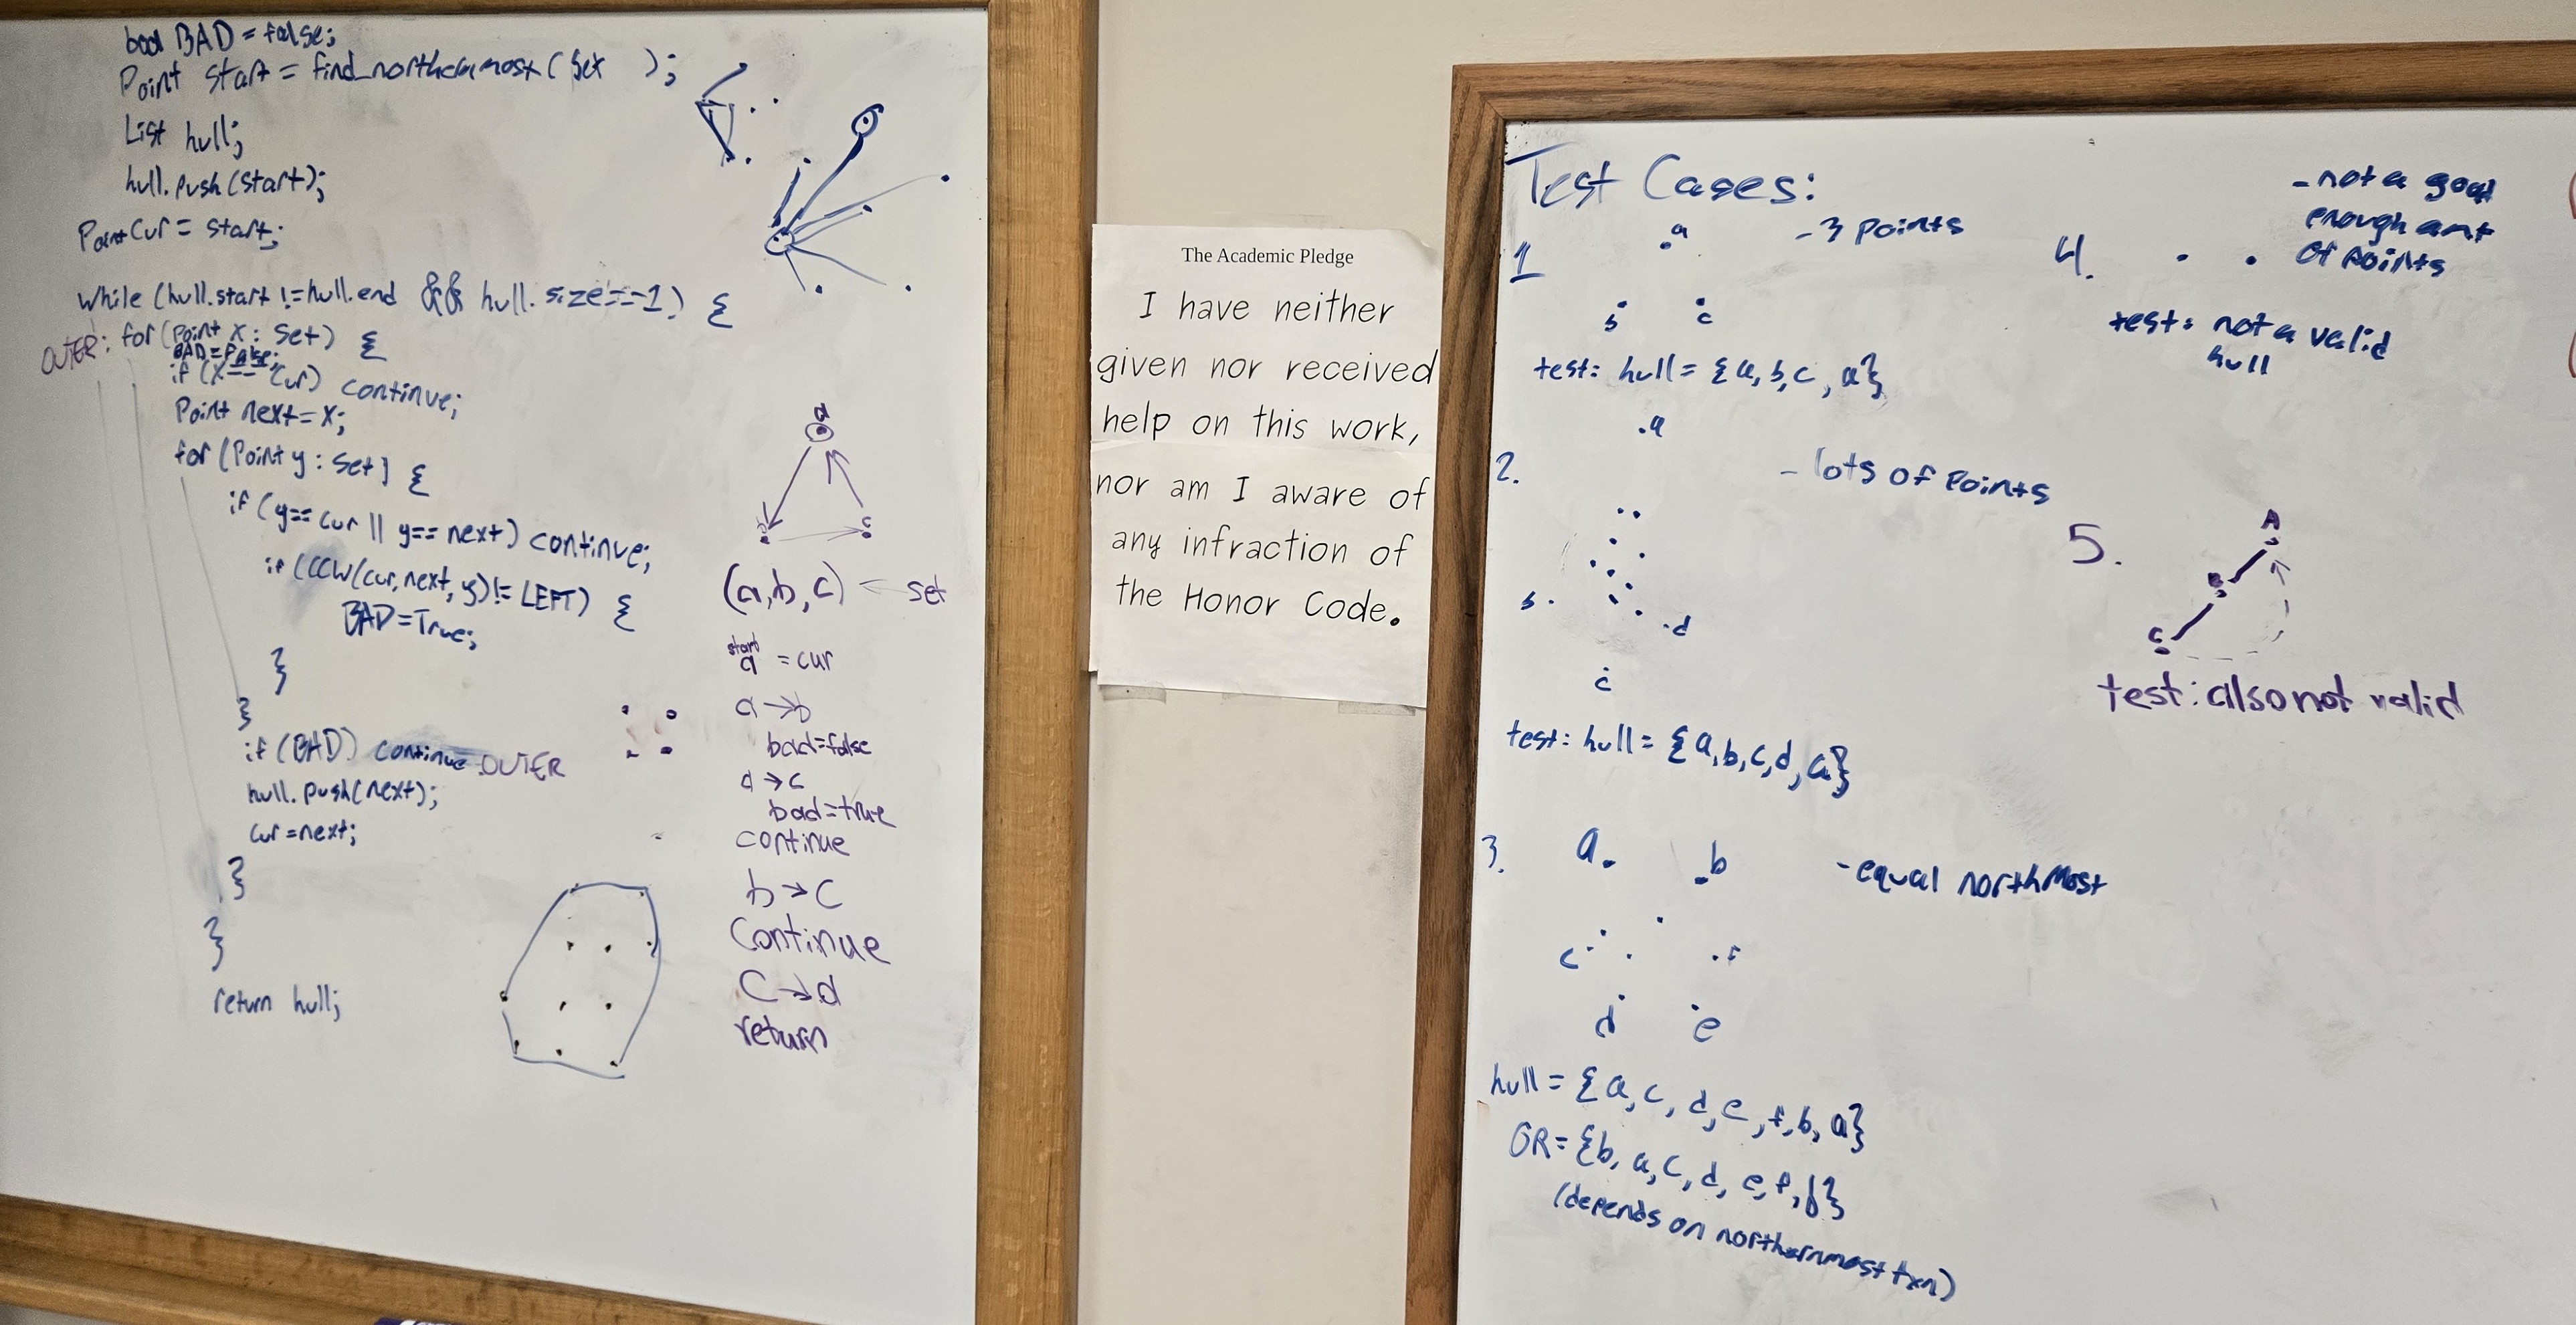 bool BAD = false;
Point start = find_northernmost ( Set );
List hull;
hull.push(start);
Point Cur = start;
while (hull.start != hull.end && hull.size==1) {
OUTER: for (Point x : Set) {
BAD = false;
if (x == Cur) continue;
Point next = x;
for (Point y : Set) {
if (y == cur || y == next) continue;
if (CCW(cur, next, y) != LEFT) {
BAD = True;
}
}
if (BAD) continue OUTER
hull.push(next);
cur = next;
}
}
return hull;
a
c
(a, b, c) ← set
start
a = cur
a → b
bad = false
a → c
bad = true
continue
b → c
Continue
C → a
return
The Academic Pledge
I have neither
given nor received
help on this work,
nor am I aware of
any infraction of
the Honor Code.
Test Cases:
1
a
- 3 points
b c
test: hull = {a, b, c, a}
2.
.a
- lots of points
b.
.d
c
test: hull = {a, b, c, d, a}
3.
a.
b
- equal northmost
c
f
d
e
hull = {a, c, d, e, f, b, a}
OR = {b, a, c, d, e, f, b}
(depends on northernmost fxn)
4.
- not a good
enough amt
of points
test: not a valid
hull
5.
A
B
C
test: also not valid